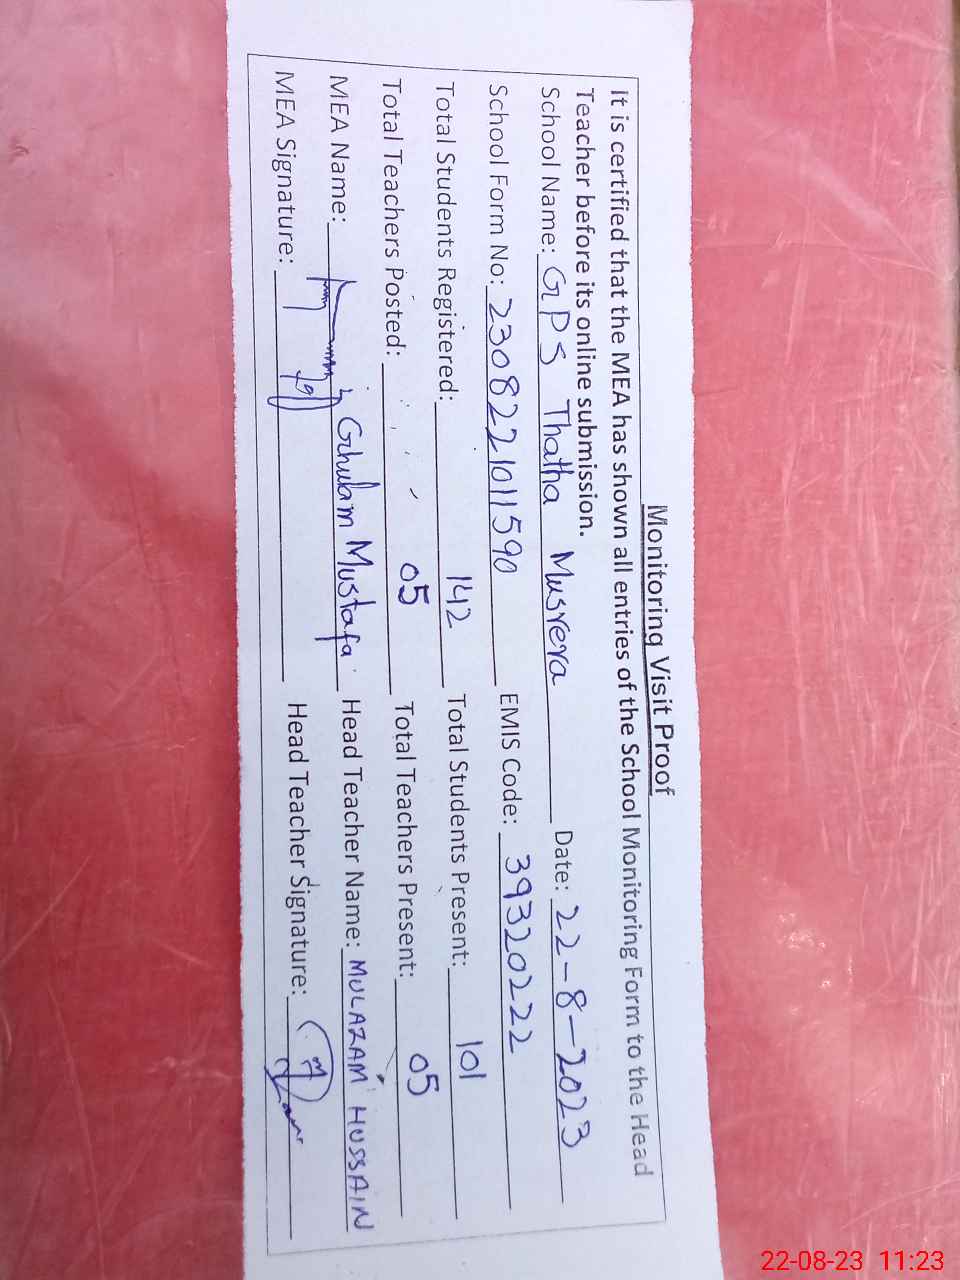 Monitoring Visit Proof
It is certified that the MEA has shown all entries of the School Monitoring Form to the Head
Teacher before its online submission.
School Name: GPS Thatha Musrera Date: 22-8-2023
School Form No: 230822101 1590 EMIS Code: 39320222
Total Students Registered: 142 Total Students Present: 101
Total Teachers Posted: 05 Total Teachers Present: 05
MEA Name: Ghulam Mustafa Head Teacher Name: MULAZAM HUSSAIN
MEA Signature: Head Teacher Signature:
22-08-23 11:23